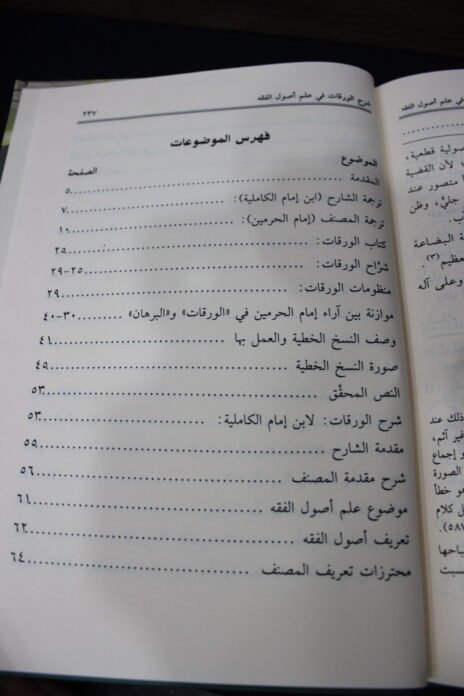 شرح الورقات في علم أصول الفقه ٢٣٧
فهرس الموضوعات
الموضوع الصفحة
المقدمة ٥
ترجمة الشارح (ابن إمام الكاملية): ٧
ترجمة المصنف (إمام الحرمين): ١٠
كتاب الورقات: ٢٥
شرَّاح الورقات: ٢٥-٢٩
منظومات الورقات: ٢٩
موازنة بين آراء إمام الحرمين في «الورقات» و«البرهان» ٣٠-٤٠
وصف النسخ الخطية والعمل بها ٤١
صورة النسخ الخطية ٤٥
النص المحقَّق ٥٣
شرح الورقات: لابن إمام الكاملية: ٥٣
مقدمة الشارح ٥٥
شرح مقدمة المصنف ٥٦
موضوع علم أصول الفقه ٦١
تعريف أصول الفقه ٦٢
محترزات تعريف المصنف ٦٤
شرح الورقات في علم أصول الفقه
صولية قطعية،
؛ لأن القضية
منصور عند
جليٌّ، وظن
ة البضاعة
عظيم(٣).
وعلى آله
ذلك عند
غير آثم،
و إجماع
الصورة
هو خطأ
ل كلام
٥٨٧).